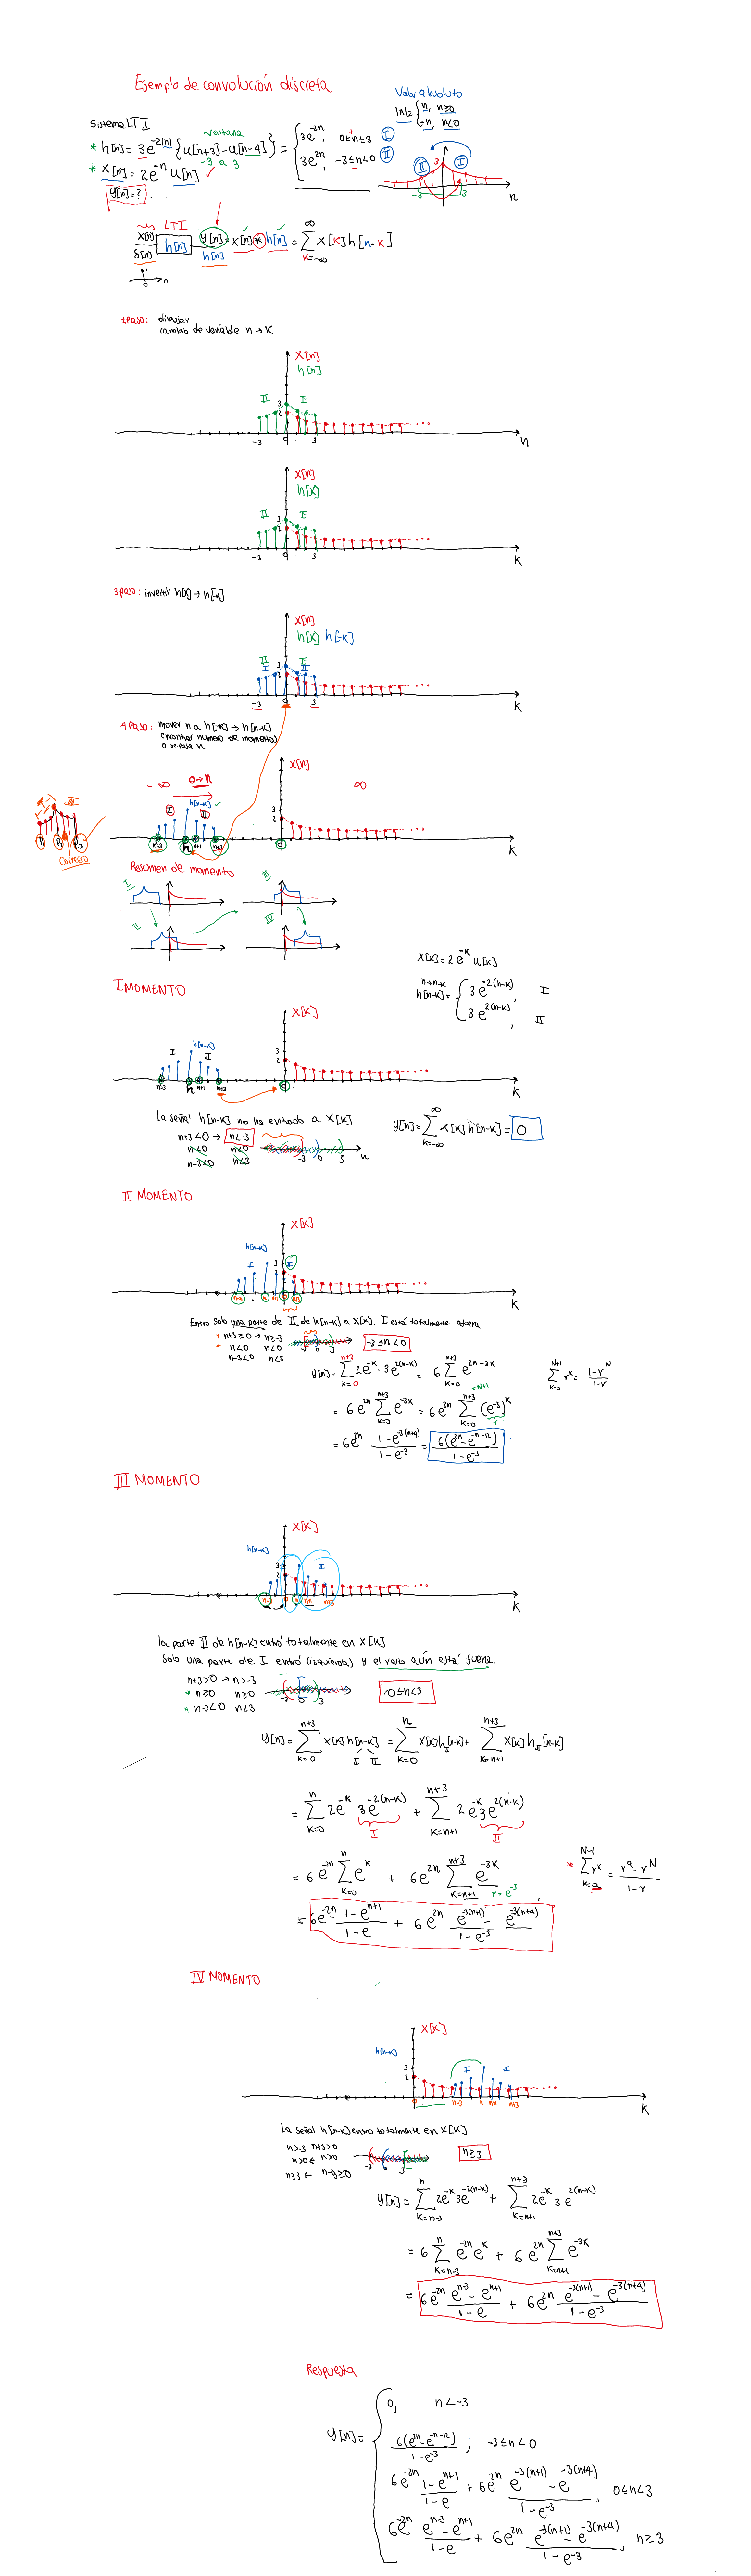 Ejemplo de convolución discreta
Valor absoluto
|n|= { n, n≥0
-n, n<0
Sistema LTI
ventana
* h[n]= 3e^{-2|n|} {u[n+3]-u[n-4]} = { 3e^{-2n}, 0≤n≤3 I
3e^{2n}, -3≤n<0 II
-3 a 3
* x[n]=2e^{-n} u[n]
y[n]=?
II I
3
-3 3
n
LTI
x[n] h[n] y[n]= x[n]*h[n] = ∑_{k=-∞}^{∞} x[k]h[n-k]
δ[n] h[n]
0 n
dibujar
cambio de variable n→k
x[n]
h[n]
II I
3
2
-3 0 3
n
x[n]
h[k]
II I
3
2
-3 0 3
k
3 paso: invertir h[k]→h[-k]
x[n]
h[k] h[-k]
II I
I II
3
2
-3 0 3
k
4 paso: mover n a h[-k]→h[n-k]
encontrar numero de momentos
o se pasa n
x[n]
-∞ 0→n ∞
h[n-k]
I II
3
2
n-3 n n+1 n+3 0
k
I II
P1 P2 P3
Correcto
Resumen de momento
I III
II IV
x[k]=2e^{-k} u[k]
n→n-k
h[n-k]= { 3e^{-2(n-k)}, I
3e^{2(n-k)}, II
I MOMENTO
x[k]
h[n-k]
I II
3
2
n-3 n n+1 n+3 0
k
la señal h[n-k] no ha entrado a x[k]
n+3<0 → n<-3
n<0 n<0
n-3<0 n<3
-3 0 3 n
y[n]=∑_{k=-∞}^{∞} x[k]h[n-k]= 0
II MOMENTO
x[k]
h[n-k]
I II
3
2
n-3 n n+1 0 n+3
k
Entro solo una parte de II de h[n-k] a x[k]. I está totalmente afuera
* n+3≥0 → n≥-3
* n<0 n<0
n-3<0 n<3
-3 0 3
-3≤n<0
y[n]=∑_{k=0}^{n+3} 2e^{-k}·3e^{2(n-k)} = 6∑_{k=0}^{n+3} e^{2n-3k}
∑_{k=0}^{N-1} r^k = (1-r^N)/(1-r)
= 6e^{2n} ∑_{k=0}^{n+3} e^{-3k} = 6e^{2n} ∑_{k=0}^{n+3 =N-1} (e^{-3})^k
r
= 6e^{2n} (1-e^{-3(n+4)})/(1-e^{-3}) = 6(e^{2n}-e^{-n-12})/(1-e^{-3})
III MOMENTO
x[k]
h[n-k]
3
2
n-3 0 n n+1 n+3
k
la parte II de h[n-k] entró totalmente en x[k]
Solo una parte de I entró (izquierda) y el resto aún está fuera.
n+3>0 → n>-3
* n≥0 n≥0
* n-3<0 n<3
-3 0 3
0≤n<3
y[n]=∑_{k=0}^{n+3} x[k]h[n-k] = ∑_{k=0}^{n} x[k]h_I[n-k]+ ∑_{k=n+1}^{n+3} x[k]h_{II}[n-k]
I II
= ∑_{k=0}^{n} 2e^{-k} 3e^{-2(n-k)} + ∑_{k=n+1}^{n+3} 2e^{-k}3e^{2(n-k)}
I II
= 6e^{-2n} ∑_{k=0}^{n} e^{k} + 6e^{2n} ∑_{k=n+1}^{n+3} e^{-3k}
r=e^{-3}
* ∑_{k=a}^{N-1} r^k = (r^a-r^N)/(1-r)
= 6e^{-2n} (1-e^{n+1})/(1-e) + 6e^{2n} (e^{-3(n+1)}-e^{-3(n+4)})/(1-e^{-3})
IV MOMENTO
x[k]
h[n-k]
I II
3
2
0 n-3 n n+1 n+3
k
la señal h[n-k] entro totalmente en x[k]
n>-3 n+3>0
n>0 ← n>0
n≥3 ← n-3≥0
-3 0 3
n≥3
y[n]=∑_{k=n-3}^{n} 2e^{-k}3e^{-2(n-k)} + ∑_{k=n+1}^{n+3} 2e^{-k}3e^{2(n-k)}
= 6∑_{k=n-3}^{n} e^{-2n}e^{k} + 6e^{2n} ∑_{k=n+1}^{n+3} e^{-3k}
= 6e^{-2n} (e^{n-3}-e^{n+1})/(1-e) + 6e^{2n} (e^{-3(n+1)}-e^{-3(n+4)})/(1-e^{-3})
Respuesta
y[n]= { 0, n<-3
6(e^{2n}-e^{-n-12})/(1-e^{-3}) ; -3≤n<0
6e^{-2n} (1-e^{n+1})/(1-e) + 6e^{2n} (e^{-3(n+1)}-e^{-3(n+4)})/(1-e^{-3}), 0≤n<3
6e^{-2n} (e^{n-3}-e^{n+1})/(1-e) + 6e^{2n} (e^{-3(n+1)}-e^{-3(n+4)})/(1-e^{-3}), n≥3